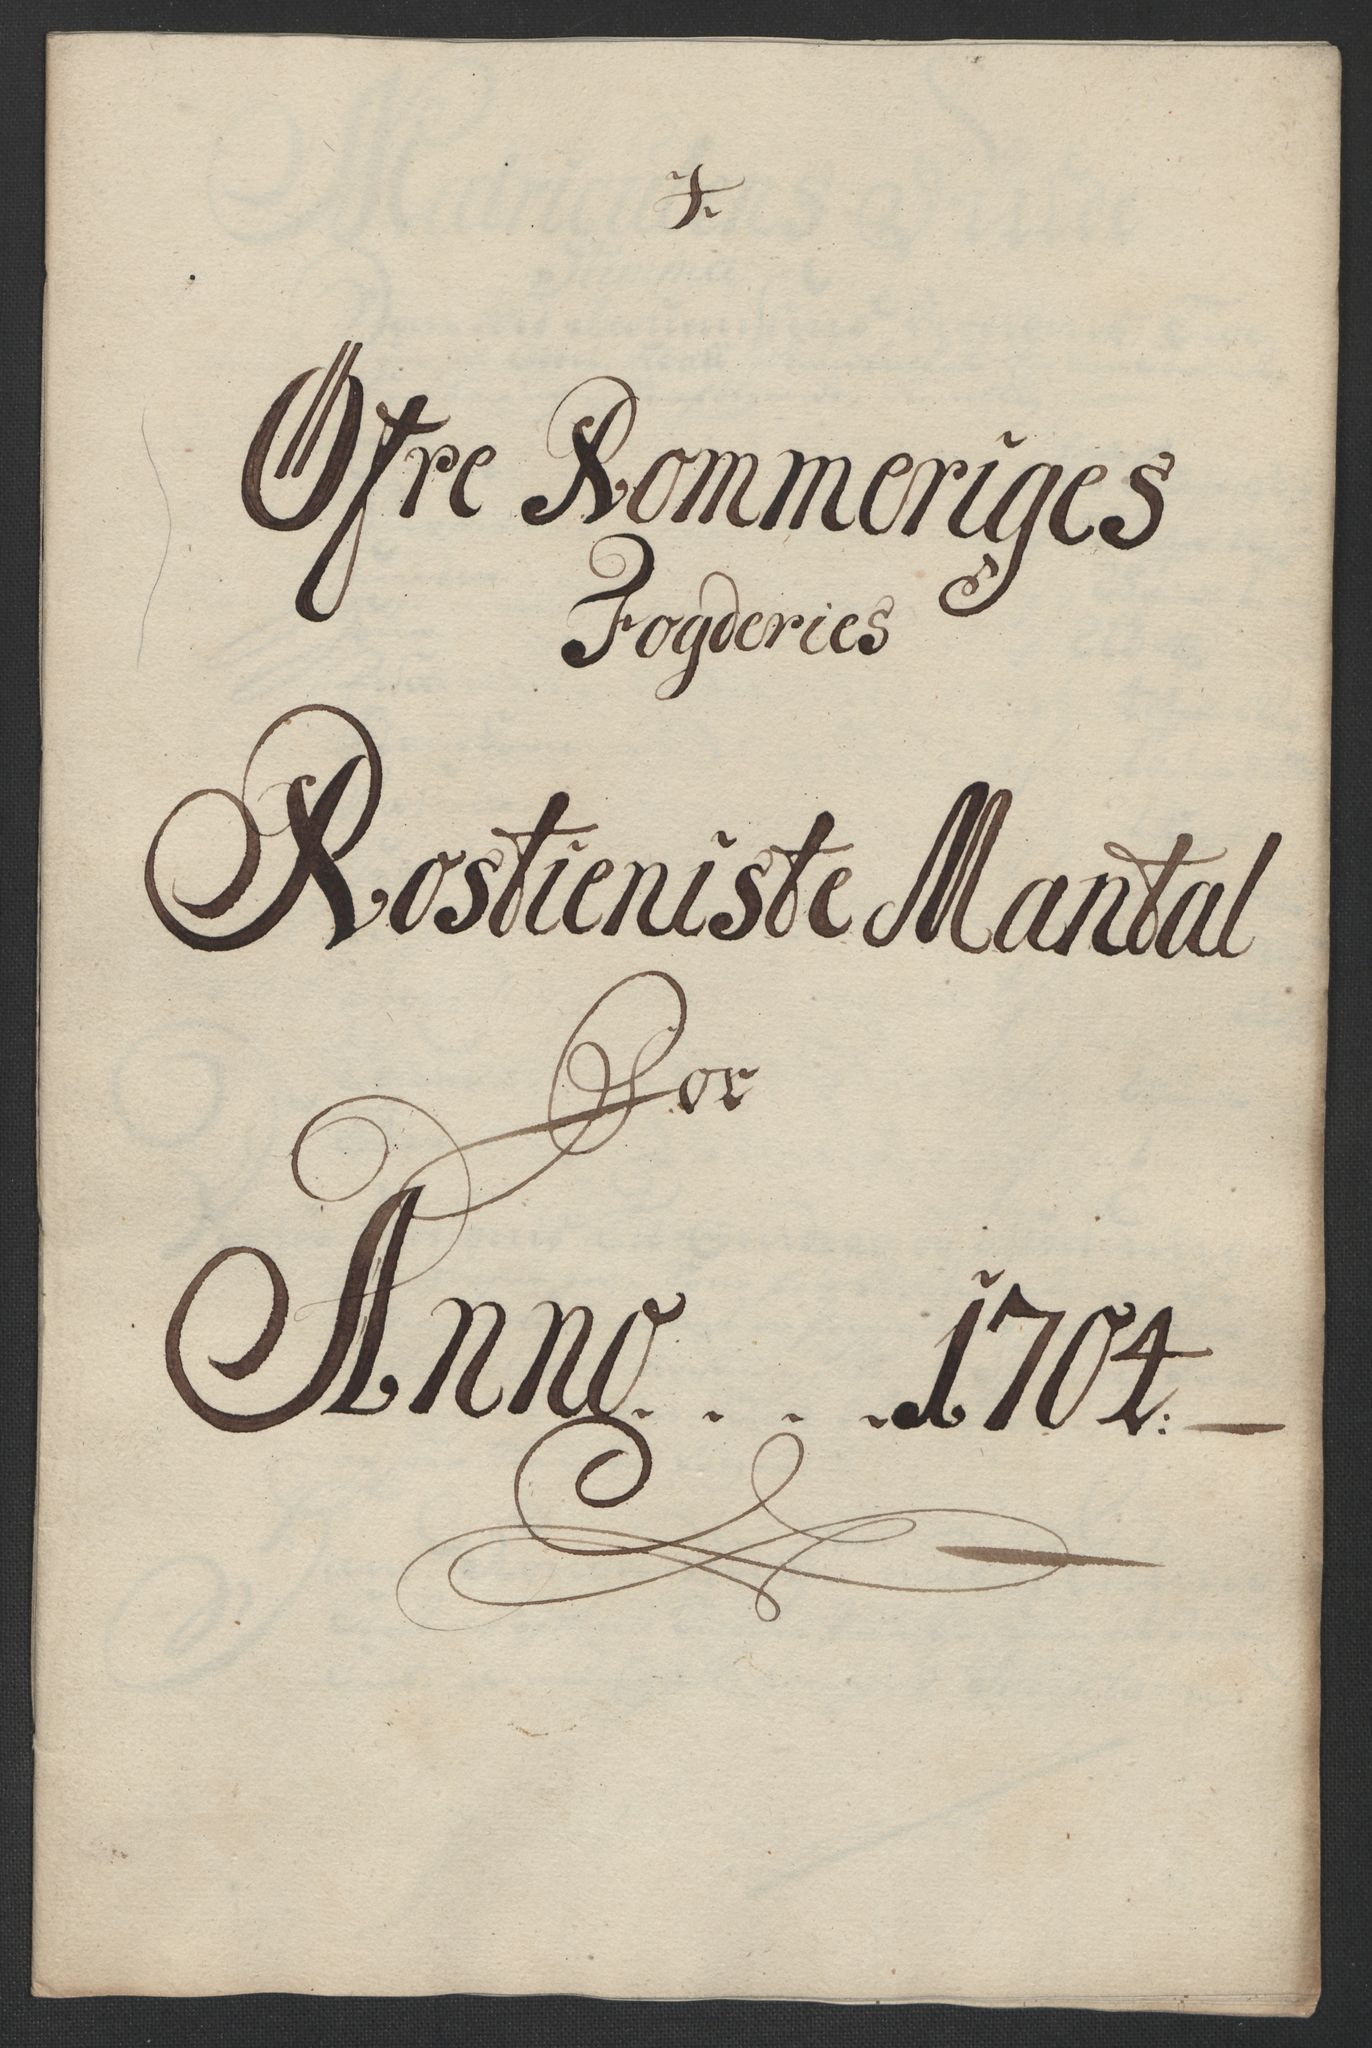 Øfre Rommeriges
Fogderies
Rostieniste Mantal
For
Anno....1704:—